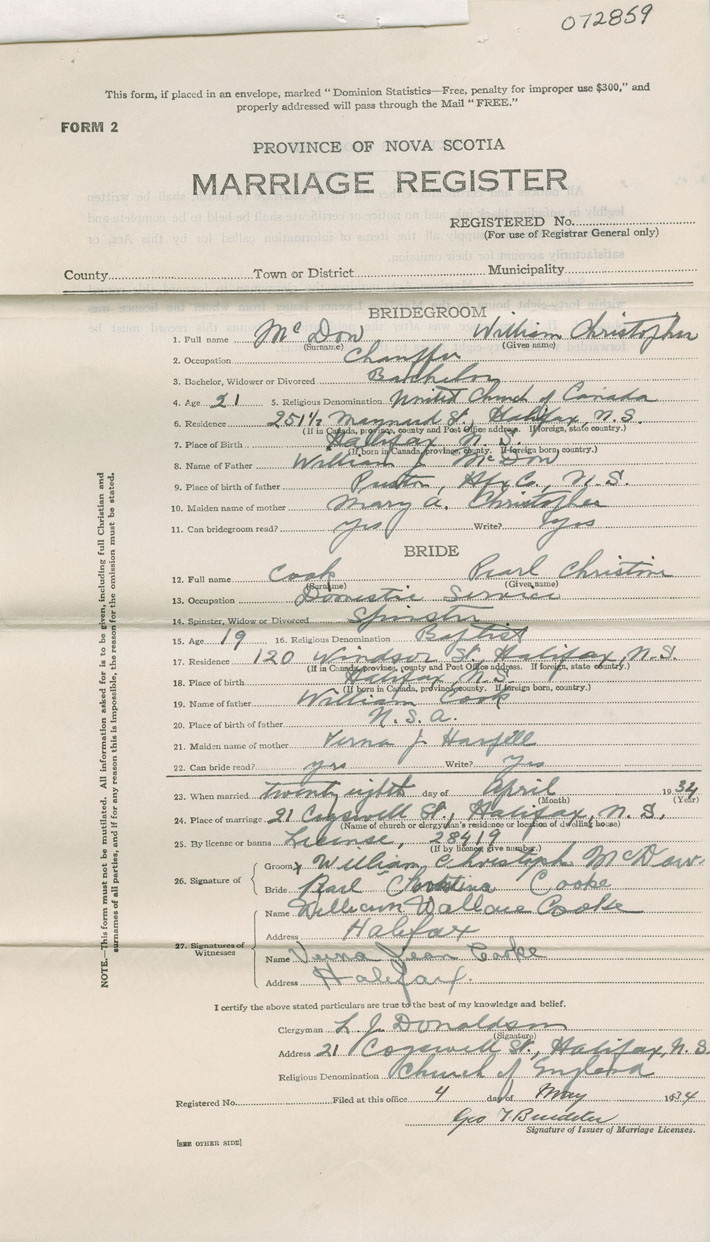 072859
This form, if placed in an envelope, marked "Dominion Statistics—Free, penalty for improper use $300," and
properly addressed will pass through the Mail "FREE."
FORM 2
PROVINCE OF NOVA SCOTIA
MARRIAGE REGISTER
REGISTERED No.
(For use of Registrar General only)
County Town or District Municipality
BRIDEGROOM
1. Full name McDow William Christopher
(Surname) (Given name)
2. Occupation Chauffer
3. Bachelor, Widower or Divorced Batchelor
4. Age 21 5. Religious Denomination United Church of Canada
6. Residence 251½ Maynard St., Halifax, N.S.
(If in Canada, province, county and Post Office address. If foreign, state country.)
7. Place of Birth Halifax N.S.
(If born in Canada, province, county. If foreign born, country.)
8. Name of Father William J. McDow
9. Place of birth of father Preston, Hfx Co., N.S.
10. Maiden name of mother Mary A. Christopher
11. Can bridegroom read? yes Write? Yes
BRIDE
12. Full name Cook Pearl Christine
(Surname) (Given name)
13. Occupation Domestic Service
14. Spinster, Widow or Divorced Spinster
15. Age 19 16. Religious Denomination Baptist
17. Residence 120 Windsor St., Halifax, N.S.
(If in Canada, province, county and Post Office address. If foreign, state country.)
18. Place of birth Halifax, N.S.
(If born in Canada, province, county. If foreign born, country.)
19. Name of father William Cook
20. Place of birth of father
21. Maiden name of mother Verna J.
22. Can bride read? yes Write? Yes
23. When married twenty eighth day of April 1934
(Month) (Year)
24. Place of marriage 21 Cogswell St., Halifax, N.S.
(Name of church or clergyman's residence or location of dwelling house)
25. By license or banns License, 28419
(If by licence give number.)
26. Signature of
Groom William Christoph McDow
Bride Pearl Christina Cooke
27. Signatures of Witnesses
Name William Wallace Cooke
Address Halifax
Name Verna Jean Cooke
Address Halifax.
I certify the above stated particulars are true to the best of my knowledge and belief.
Clergyman L. J. Donaldson
(Signature)
Address 21 Cogswell St., Halifax, N.S.
Religious Denomination Church of England
Registered No. Filed at this office 4 day of May 1934
Geo
Signature of Issuer of Marriage Licenses.
[SEE OTHER SIDE]
NOTE.—This form must not be mutilated. All information asked for is to be given, including full Christian and
surnames of all parties, and if for any reason this is impossible, the reason for the omission must be stated.